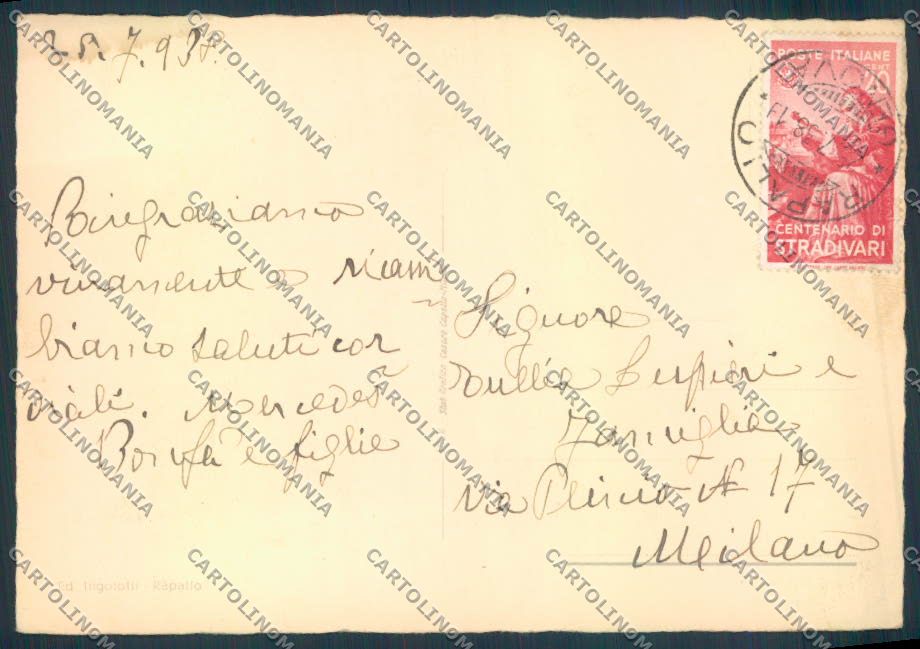 25.7.938.
Ringraziamo
vivamente e ricam
biamo saluti cor
diali. Mercedes
Bonfà e figlie
Signore
e
Famiglia
Via Plinio N 17
Milano
POSTE ITALIANE
CENT
CENTENARIO DI
STRADIVARI
RAPALLO
Ed. - Rapallo
CARTOLINOMANIA